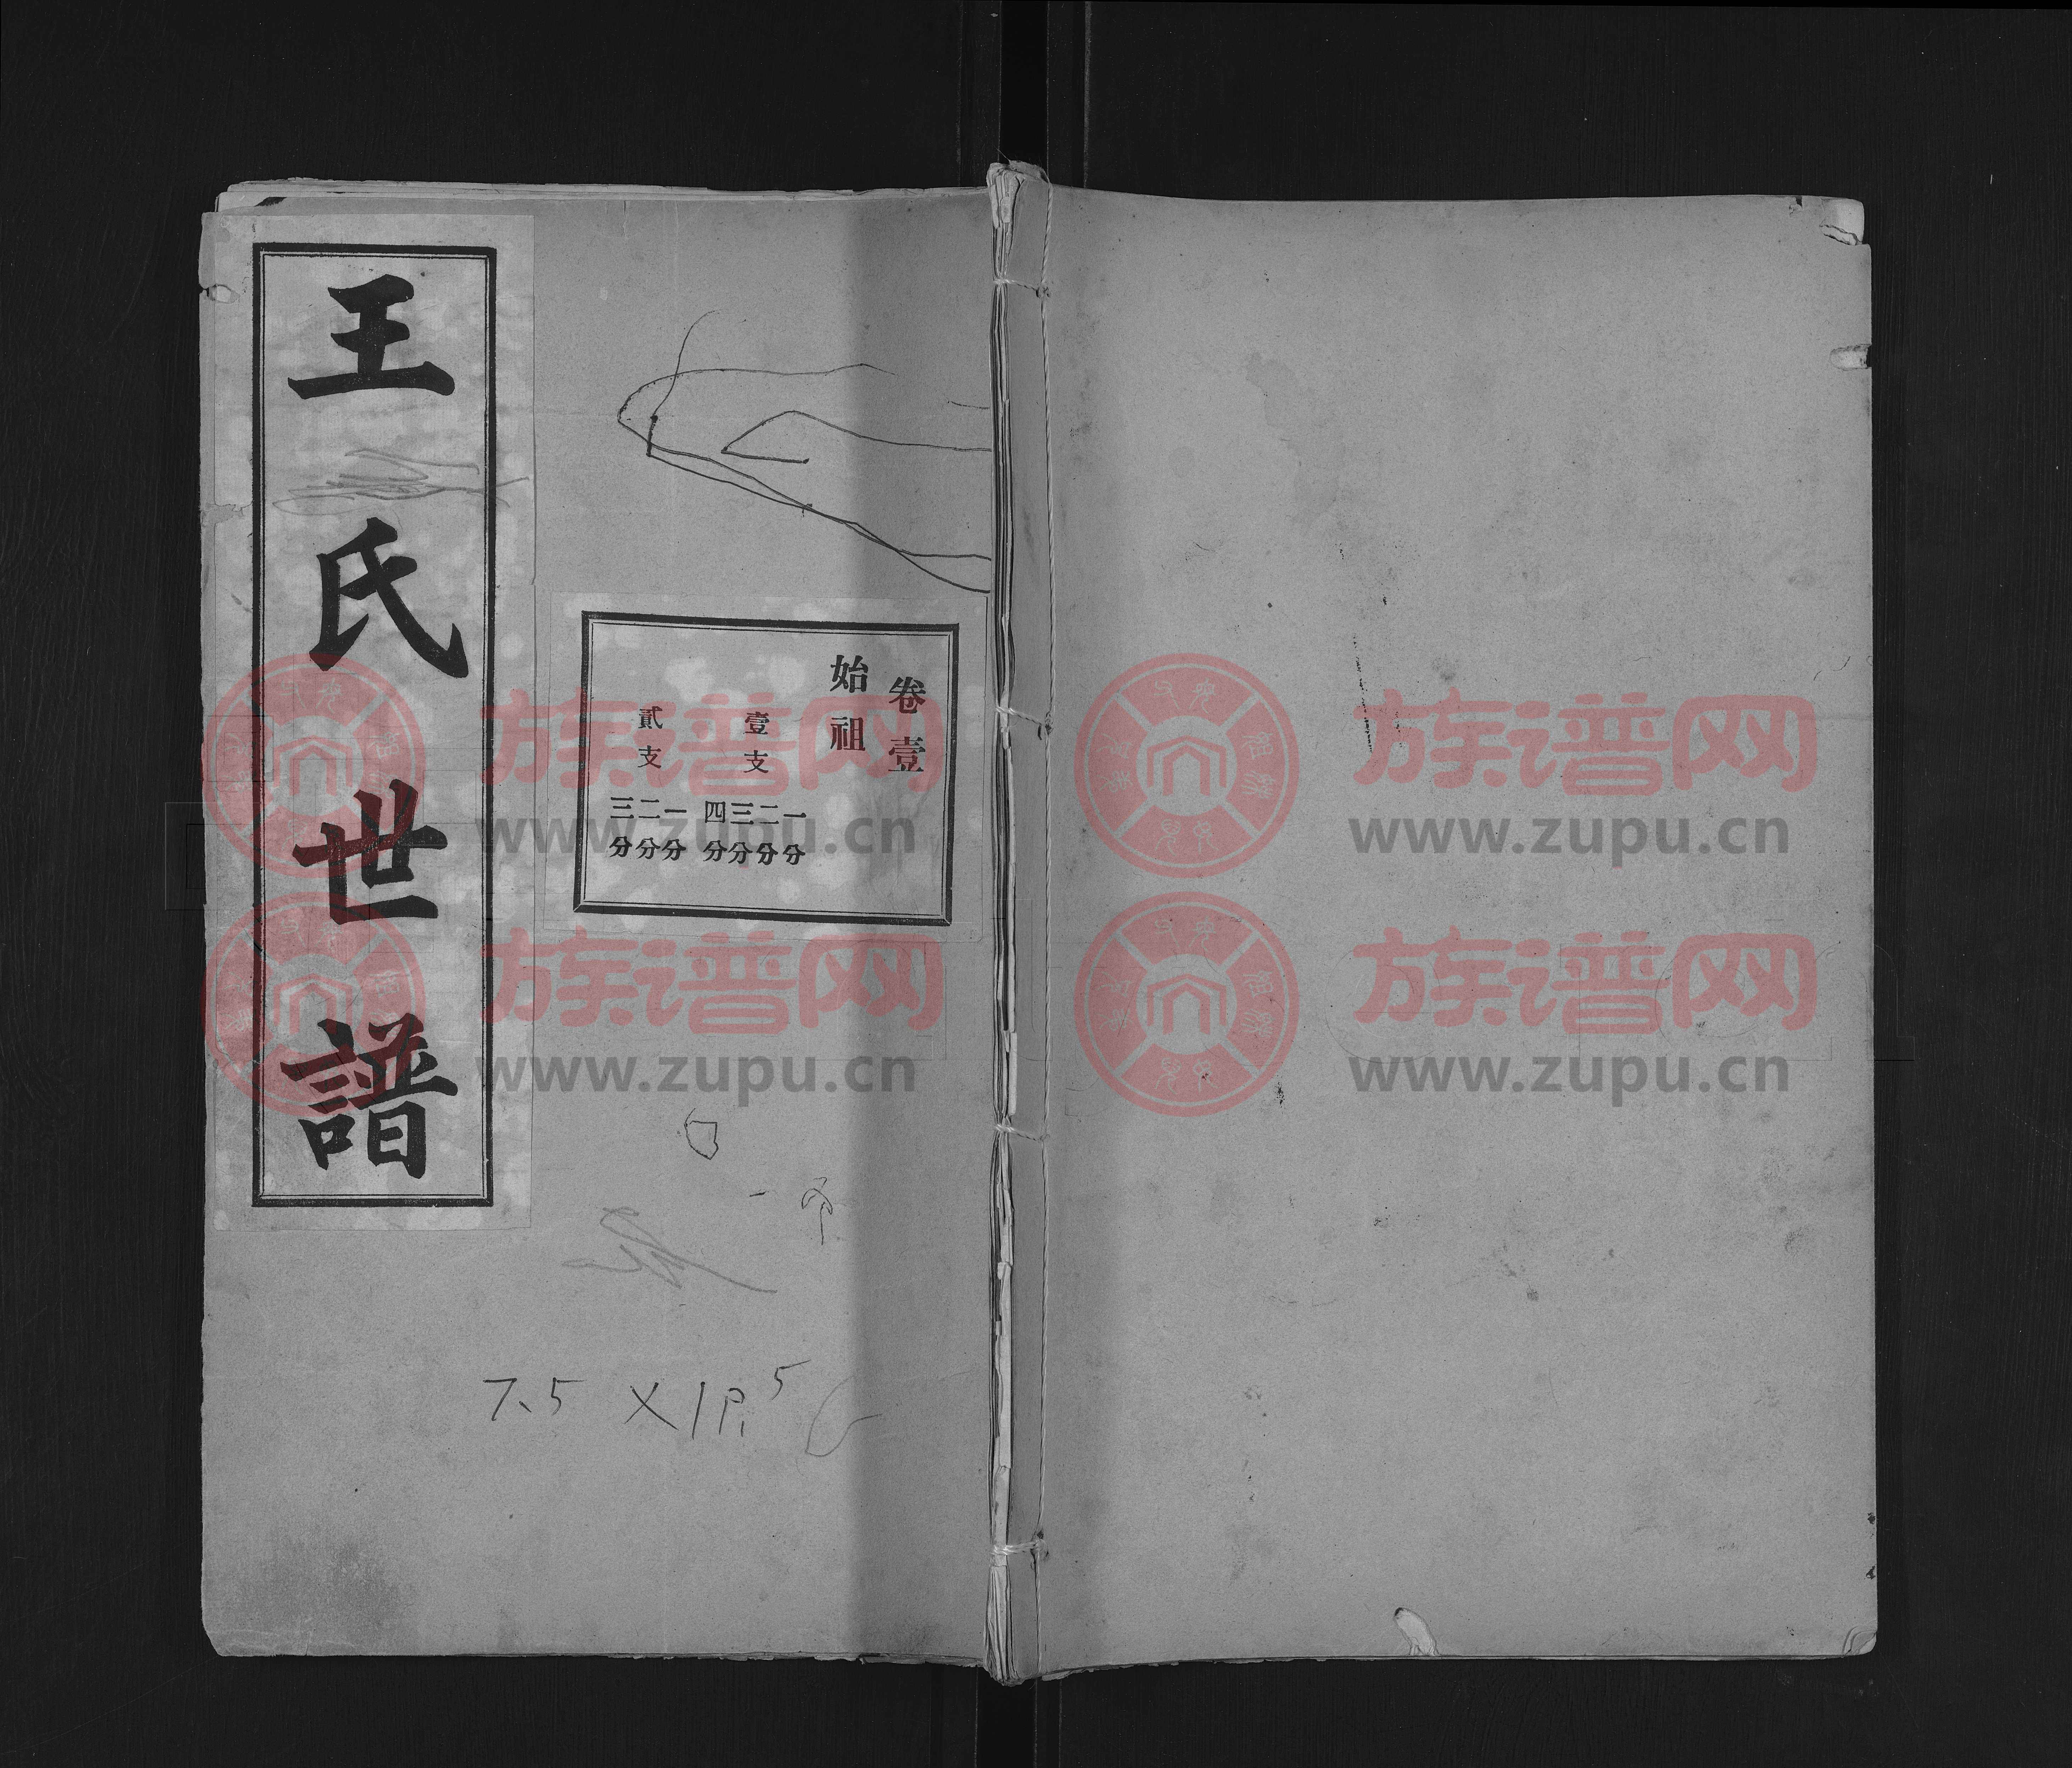 王氏世譜
卷壹
始祖
壹支
一分
二分
三分
四分
貳支
一分
二分
三分
7.5 X 19.5
族谱网
www.zupu.cn
族谱网
www.zupu.cn
族谱网
www.zupu.cn
族谱网
www.zupu.cn